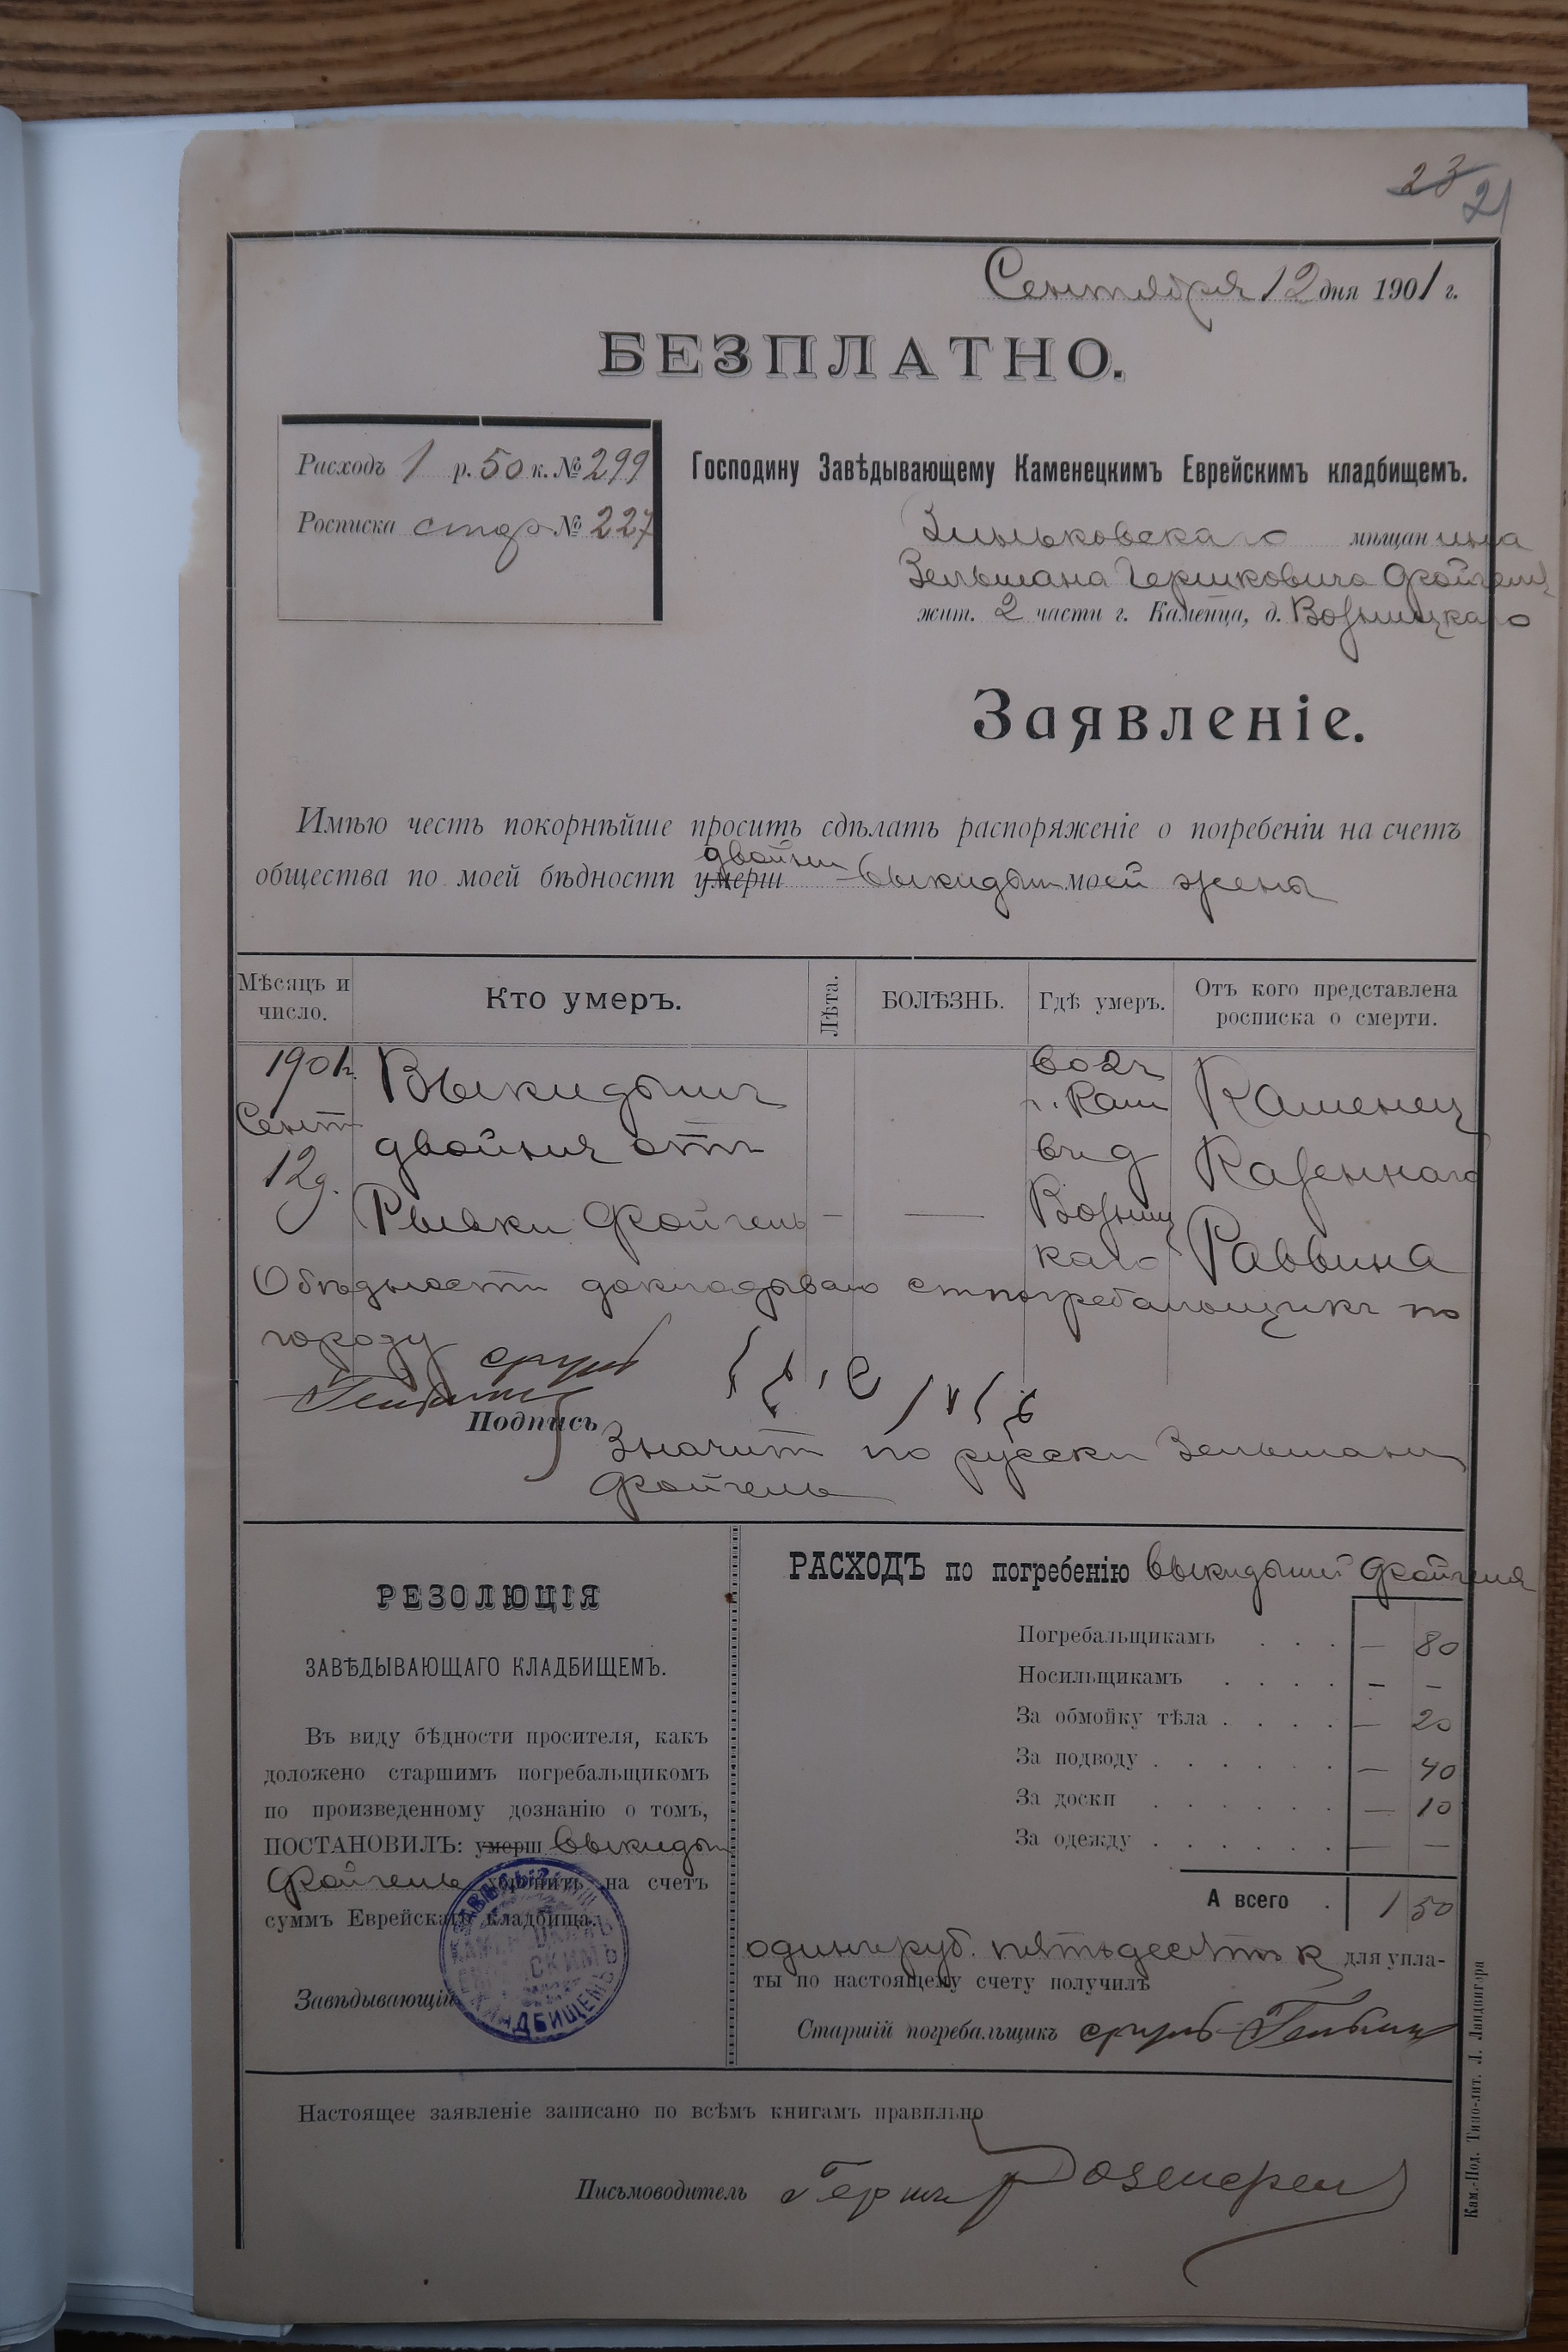 23
21
Сентября 12 дня 1901 г.
БЕЗПЛАТНО.
Расходъ 1 р. 50 к. № 299
Росписка стар № 227
Господину Завѣдывающему Каменецкимъ Еврейскимъ кладбищемъ.
Зиньковскаго мѣщанина
Зельмана Гершковича Фойгеля
жит. 2 части г. Каменца, д. Возницкаго
Заявленіе.
Имѣю честь покорнѣйше просить сдѣлать распоряженіе о погребеніи на счетъ
двойни
общества по моей бѣдности умерш выкидыш моей жены
Мѣсяцъ и число.
Кто умеръ.
Лѣта.
БОЛѢЗНЬ.
Гдѣ умеръ.
Отъ кого представлена росписка о смерти.
1901 г.
Сент
12 д.
Выкидышъ
двойня отъ
Рывки Фойгель
—
—
во 2 ч
г. Кам
въ д
Возниц
каго
Каменец
Казеннаго
Раввина
О бѣдности докладываю ст погребальщикъ по
городу
Подпись
Значит по русски Зельманъ
Фойгель
РЕЗОЛЮЦІЯ
ЗАВѢДЫВАЮЩАГО КЛАДБИЩЕМЪ.
Въ виду бѣдности просителя, какъ
доложено старшимъ погребальщикомъ
по произведенному дознанію о томъ,
ПОСТАНОВИЛЪ: умерш выкидыш
Фойгель хоронить на счетъ
суммъ Еврейскаго кладбища.
Завѣдывающій
ЗАВѢДЫВ
КАМЕНЕЦКИМЪ
ЕВРЕЙСКИМЪ
КЛАДБИЩЕМЪ
РАСХОДЪ по погребенію выкидыши Фойгеля
Погребальщикамъ . . . — 80
Носильщикамъ . . . . — —
За обмойку тѣла . . . . — 20
За подводу . . . . . . — 40
За доски . . . . . . — 10
За одежду . . . . . . — —
А всего . 1 50
одинъ руб. пятьдесятъ к для упла-
ты по настоящему счету получилъ
Старшій погребальщикъ
Настоящее заявленіе записано по всѣмъ книгамъ правильно
Письмоводитель Герш Розенкрен
Кам.-Под. Типо-лит. Л. Ландвигера